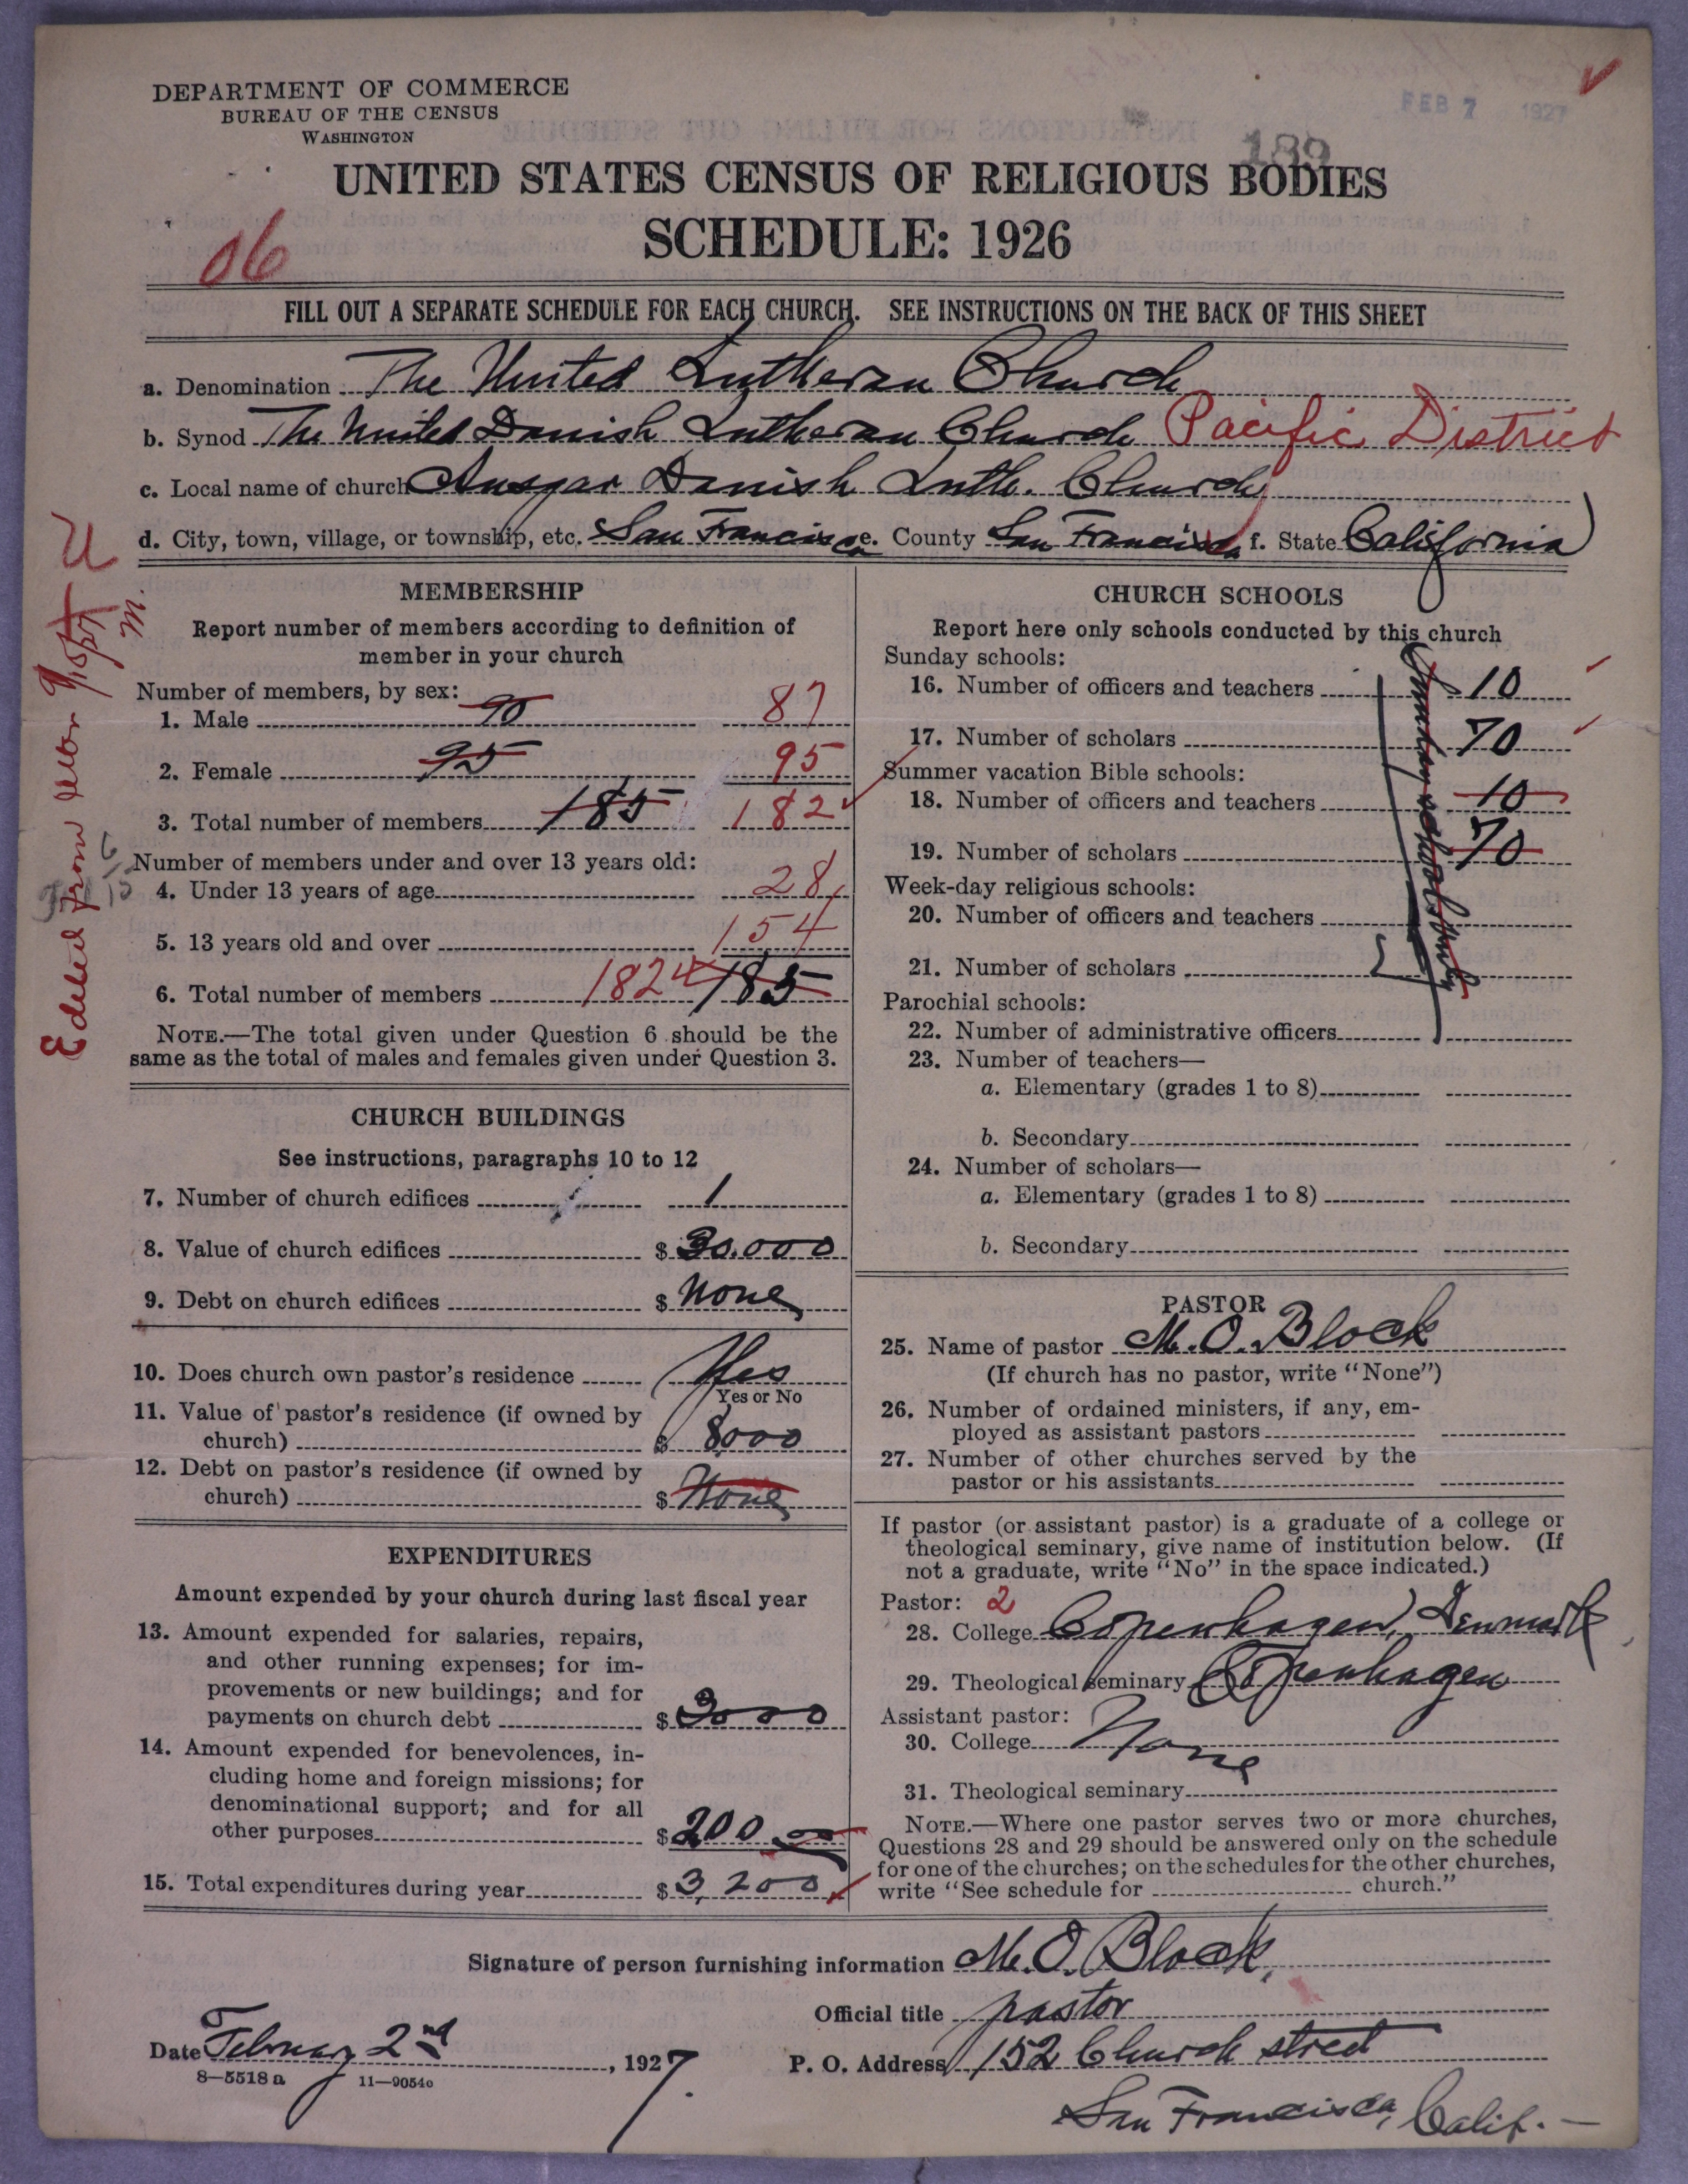 DEPARTMENT OF COMMERCE
BUREAU OF THE CENSUS
WASHINGTON
FEB 7 1927
189
UNITED STATES CENSUS OF RELIGIOUS BODIES
SCHEDULE: 1926
06
FILL OUT A SEPARATE SCHEDULE FOR EACH CHURCH. SEE INSTRUCTIONS ON THE BACK OF THIS SHEET
a. Denomination The United Lutheran Church
b. Synod The United Danish Lutheran Church Pacific District
c. Local name of church Ansgar Danish Luth. Church
d. City, town, village, or township, etc. San Francisco e. County San Francisco f. State California
MEMBERSHIP
Report number of members according to definition of
member in your church
Number of members, by sex:
1. Male 90 87
2. Female 95 95
3. Total number of members 185 182
Number of members under and over 13 years old:
4. Under 13 years of age 28
5. 13 years old and over 154
6. Total number of members 182 185
NOTE.—The total given under Question 6 should be the
same as the total of males and females given under Question 3.
Edited from letter
CHURCH BUILDINGS
See instructions, paragraphs 10 to 12
7. Number of church edifices 1
8. Value of church edifices $ 30.000
9. Debt on church edifices $ None
10. Does church own pastor's residence Yes
Yes or No
11. Value of pastor's residence (if owned by
church) $ 8000
12. Debt on pastor's residence (if owned by
church) $ None
EXPENDITURES
Amount expended by your church during last fiscal year
13. Amount expended for salaries, repairs,
and other running expenses; for im-
provements or new buildings; and for
payments on church debt $ 3000
14. Amount expended for benevolences, in-
cluding home and foreign missions; for
denominational support; and for all
other purposes $ 200
15. Total expenditures during year $ 3,200
CHURCH SCHOOLS
Report here only schools conducted by this church
Sunday schools:
16. Number of officers and teachers 10
17. Number of scholars 70
Summer vacation Bible schools:
18. Number of officers and teachers 10
19. Number of scholars 70
Week-day religious schools:
20. Number of officers and teachers
21. Number of scholars
Parochial schools:
22. Number of administrative officers
23. Number of teachers—
a. Elementary (grades 1 to 8)
b. Secondary
24. Number of scholars—
a. Elementary (grades 1 to 8)
b. Secondary
Sunday school only
PASTOR
25. Name of pastor M. O. Block
(If church has no pastor, write "None")
26. Number of ordained ministers, if any, em-
ployed as assistant pastors
27. Number of other churches served by the
pastor or his assistants
If pastor (or assistant pastor) is a graduate of a college or
theological seminary, give name of institution below. (If
not a graduate, write "No" in the space indicated.)
Pastor: 2
28. College Copenhagen, Denmark
29. Theological seminary Copenhagen
Assistant pastor:
30. College None
31. Theological seminary
NOTE.—Where one pastor serves two or more churches,
Questions 28 and 29 should be answered only on the schedule
for one of the churches; on the schedules for the other churches,
write "See schedule for church."
Signature of person furnishing information M. O. Block,
Official title pastor
Date February 2nd, 1927.
P. O. Address 152 Church street
8—5518 a 11—9054c
San Francisco, Calif.